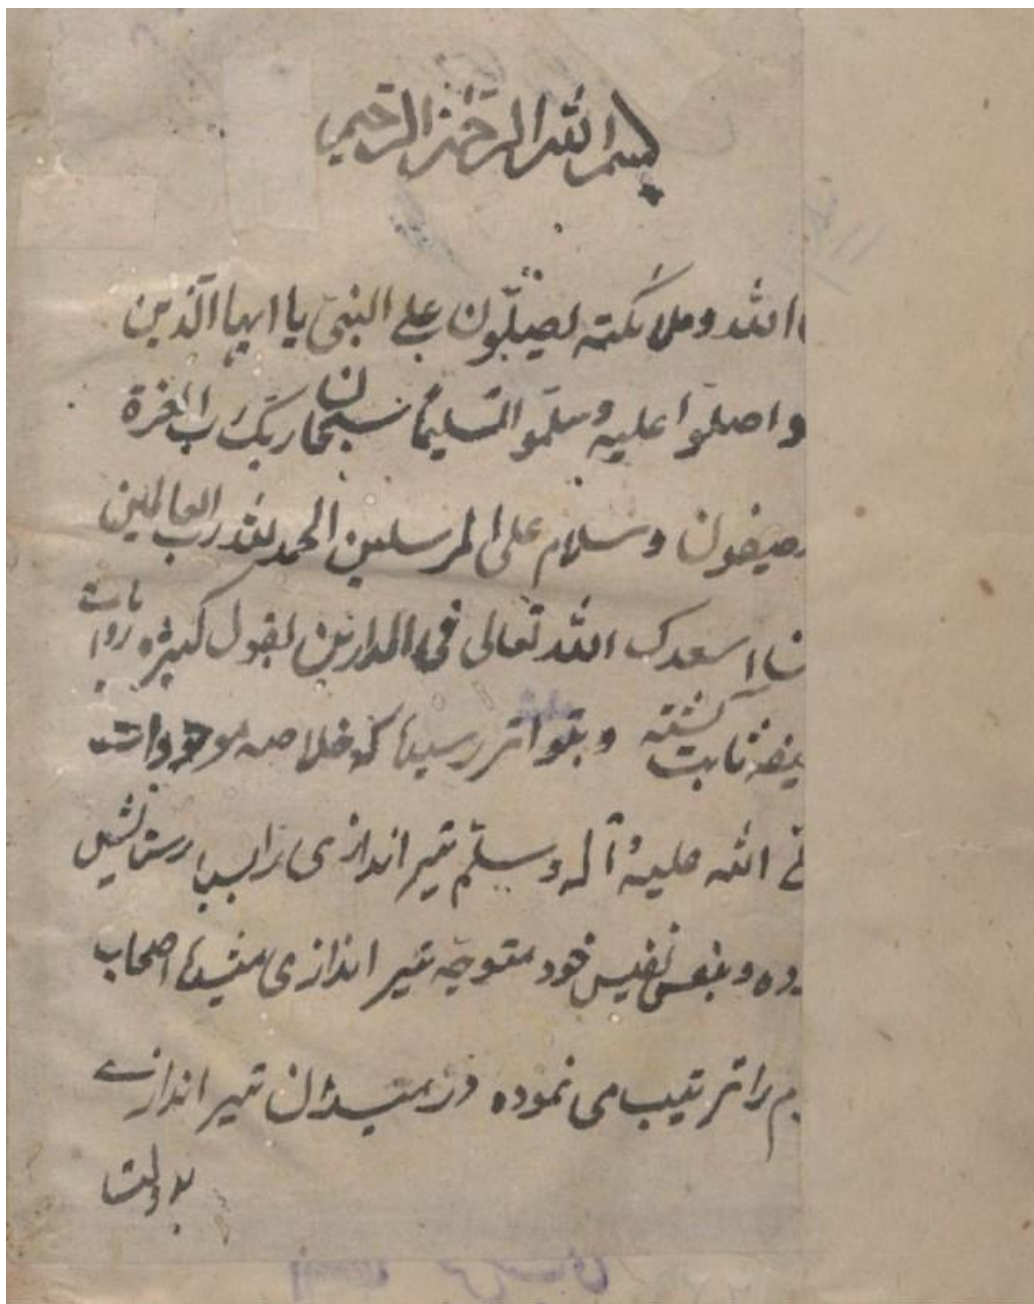 بسم الله الرحمن الرحيم
الله وملائكته يصلّون على النبىّ يا ايها الّذين
وا صلّوا عليه وسلّموا تسليمًا سبحان ربّك ربّ العزة
يصفون وسلام على المرسلين الحمد لله رب العالمين
اسعدک الله تعالى فى الدارين بنقول كثيره روايات
ثابت گشته و بتواتر رسیده که خلاصه موجودات
الله عليه و آله وسلّم تیر اندازی را بسیار
وده و بنفس نفیس خود متوجّه تیر اندازی میشده اصحاب
م را ترتیب می نموده در تیر اندازے
بدولت